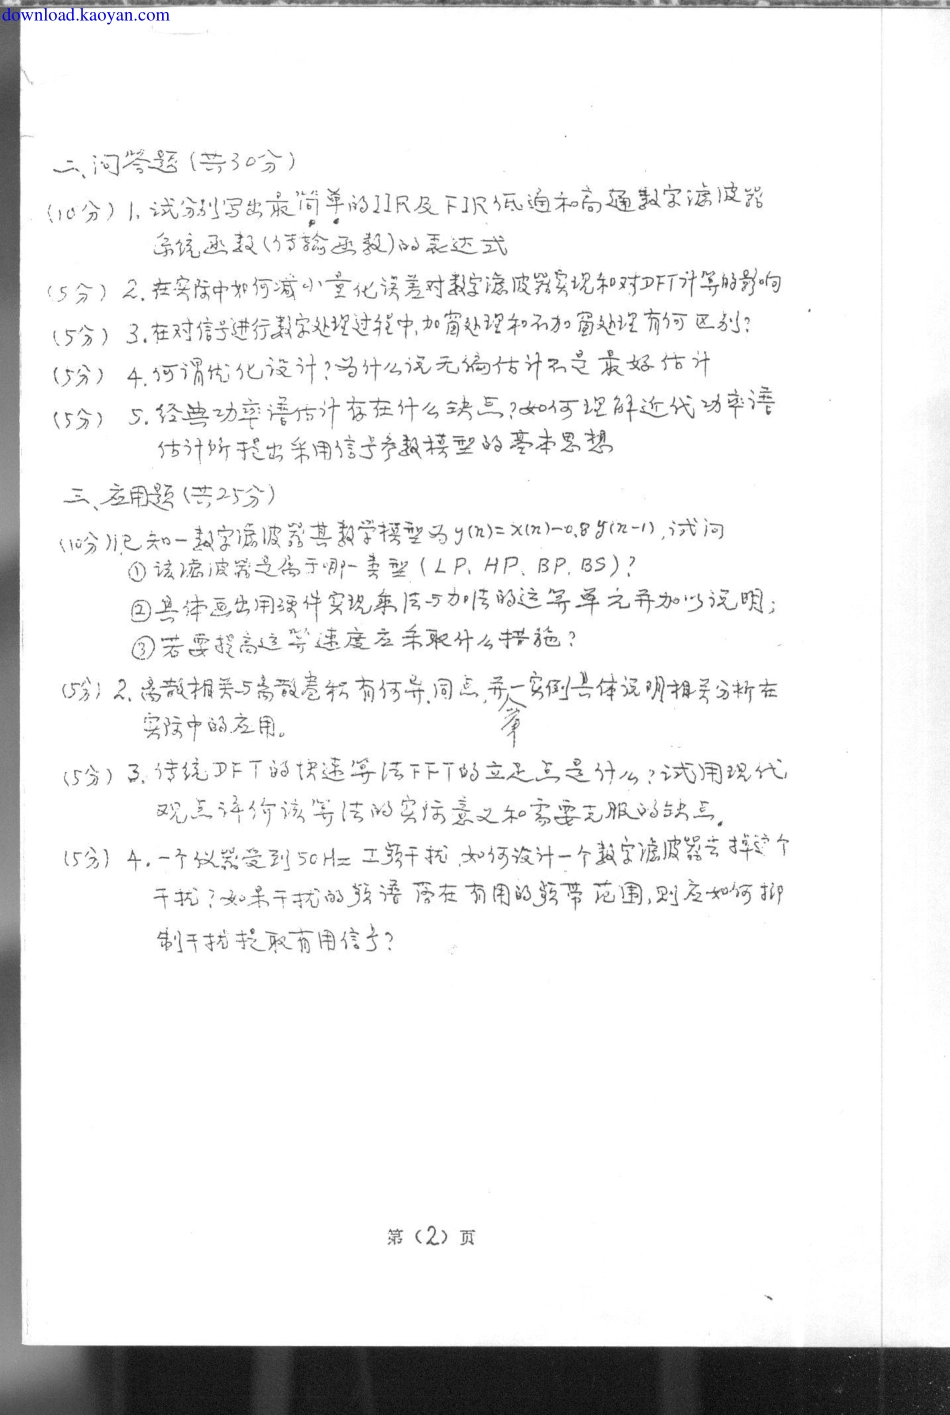 download.kaoyan.com
二、问答题(共30分)
(10分) 1. 试分别写出最简单的IIR及FIR低通和高通数字滤波器
系统函数(传输函数)的表达式
(5分) 2. 在实际中如何减小量化误差对数字滤波器实现和对DFT计算的影响
(5分) 3. 在对信号进行数字处理过程中,加窗处理和不加窗处理有何区别?
(5分) 4. 何谓优化设计?为什么说无偏估计不是最好估计
(5分) 5. 经典功率谱估计存在什么缺点?如何理解近代功率谱
估计所提出采用信号参数模型的基本思想
三、应用题(共25分)
(10分) 1. 已知一数字滤波器其数学模型为 y(n)=x(n)-0.8y(n-1),试问
① 该滤波器是属于哪一类型 (LP、HP、BP、BS)?
② 具体画出用硬件实现乘法与加法的运算单元并加以说明;
③ 若要提高运算速度应采取什么措施?
(5分) 2. 离散相关与离散卷积有何异、同点,并举一实例具体说明相关分析在
实际中的应用。
(5分) 3. 传统DFT的快速算法FFT的立足点是什么?试用现代
观点评价该算法的实际意义和需要克服的缺点。
(5分) 4. 一个仪器受到50Hz工频干扰,如何设计一个数字滤波器去掉这个
干扰?如果干扰的频谱落在有用的频带范围,则应如何抑
制干扰提取有用信号?
第(2)页